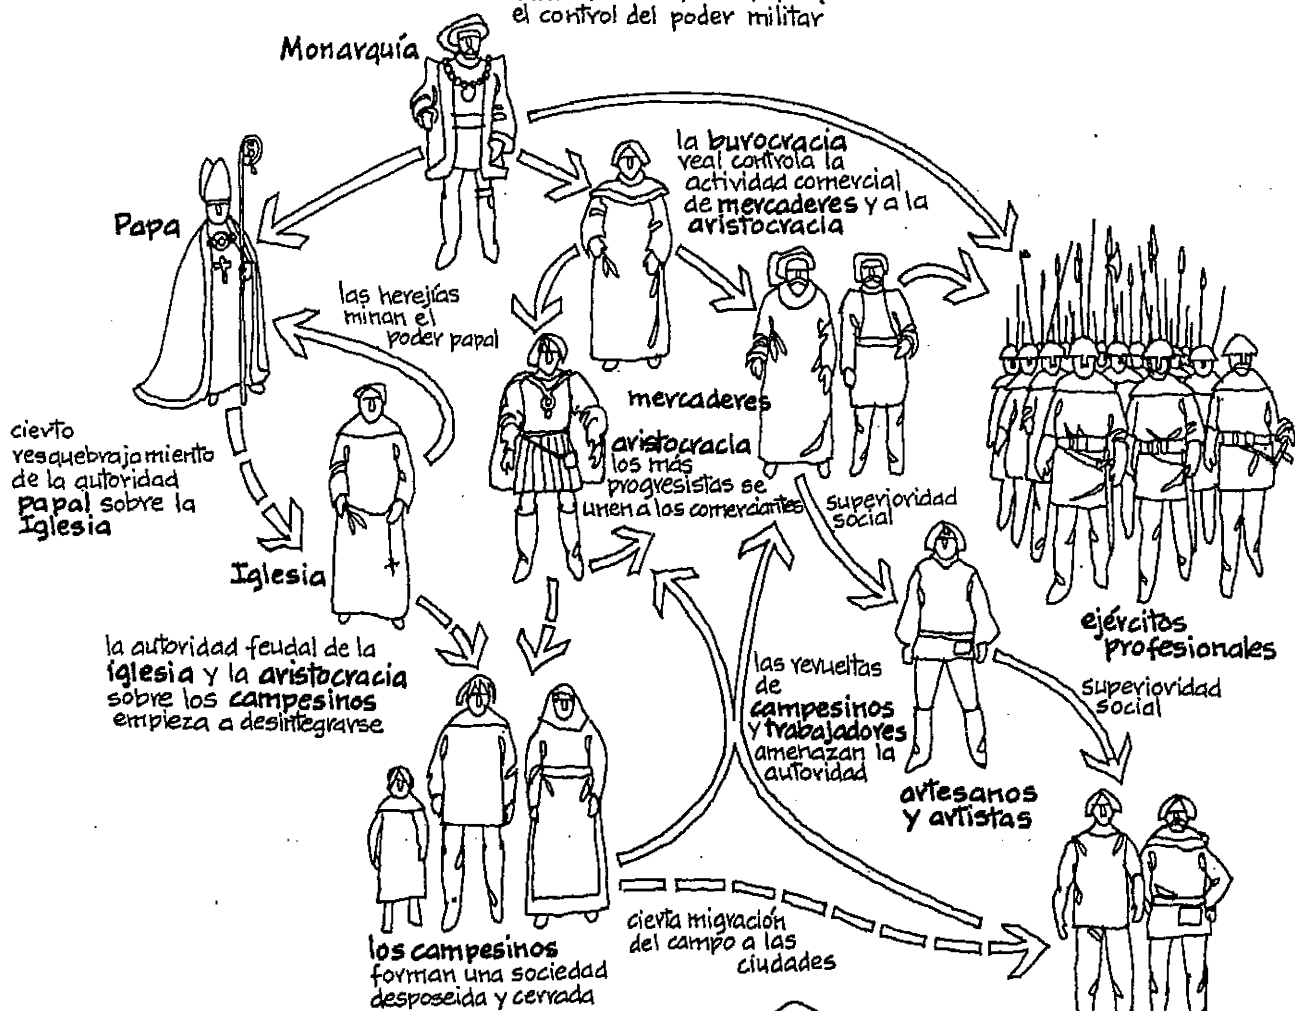 el control del poder militar
Monarquía
la burocracia
real controla la
actividad comercial
de mercaderes y a la
aristocracia
Papa
las herejías
minan el
poder papal
mercaderes
cierto
resquebrajamiento
de la autoridad
papal sobre la
Iglesia
aristocracia
los más
progresistas se
unen a los comerciantes
superioridad
social
Iglesia
ejércitos
profesionales
la autoridad feudal de la
iglesia y la aristocracia
sobre los campesinos
empieza a desintegrarse
las revueltas
de
campesinos
y trabajadores
amenazan la
autoridad
superioridad
social
artesanos
y artistas
cierta migración
del campo a las
ciudades
los campesinos
forman una sociedad
desposeida y cerrada